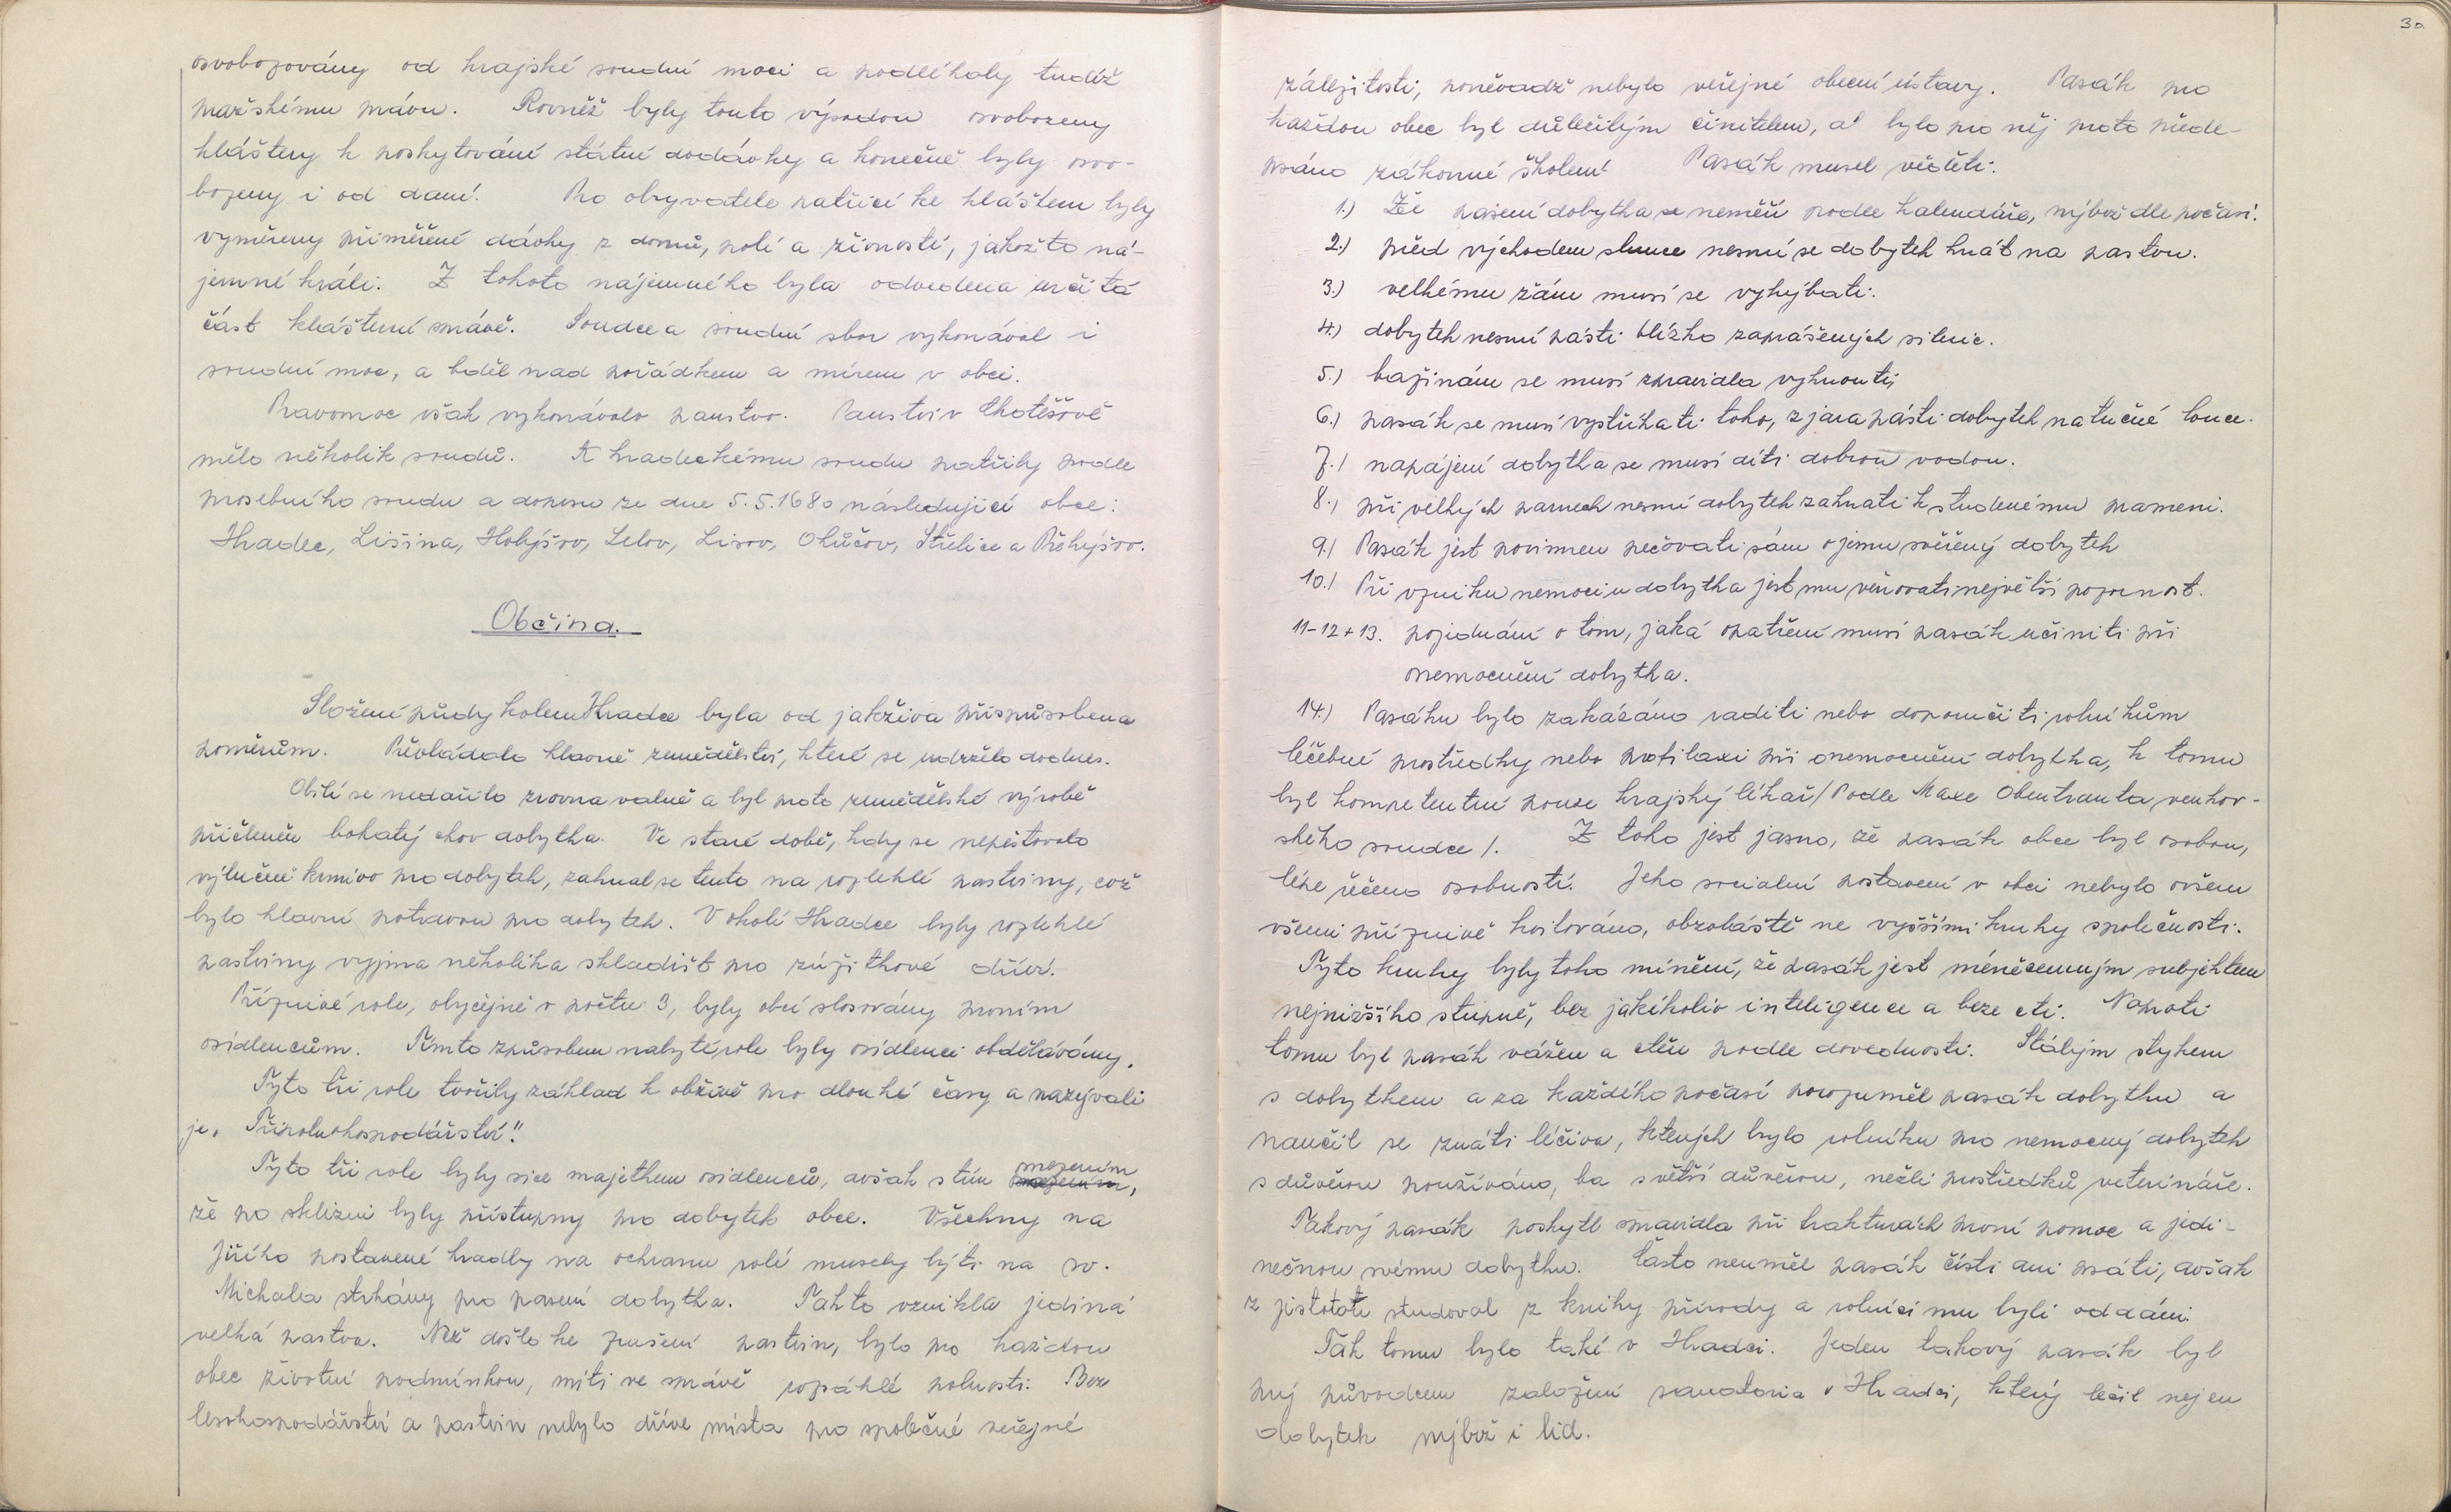 osvobozovány od krajské soudní moci a podléhaly tudíž
pražskému právu. Rovněž byly touto výsadou osvobozeny
kláštery k poskytování státní dodávky a konečně byly osvo-
bozeny i od daní. Pro obyvatele patřící ke klášteru byly
vyměřeny přiměřené dávky z domů, polí a živností, jakožto ná-
jemné králi. Z tohoto nájemného byla odvedena určitá
část klášterní správě. Soudce a soudní sbor vykonával i
soudní moc, a bděl nad pořádkem a mírem v obci.
Pravomoc však vykonávalo panstvo. Panství v Chotěšově
mělo několik soudů. K hradeckému soudu patřily podle
prosebního soudu a dopisu ze dne 5.5.1680 následující obce:
Hradec, Lišina, Holýšov, Lelov, Lisov, Chlůčov, Střelice a Pšehýšov.
Občina.
Složení půdy kolem Hradce byla od jakživa přispůsobena
poměrům. Převládalo hlavně zemědělství, které se udrželo dodnes.
Obilí se nedařilo zrovna valně a byl proto zemědělské výrobě
přičleněn bohatý chov dobytka. Ve staré době, kdy se nepěstovalo
výlučně krmivo pro dobytek, zahnal se tento na rozlehlé pastviny, což
bylo hlavní potravou pro dobytek. V okolí Hradce byly rozlehlé
pastviny vyjma několika skladišt pro zužitkové dříví.
Příznivé role, obyčejně v počtu 3, byly obcí slosovány prvním
osidlencům. Tímto způsobem nabyté role byly osidlenci obdělávány.
Tyto tři role tvořily základ k obživě pro dlouhé časy a nazývali
je „Třípoluohospodářství".
Tyto tři role byly sice majetkem osidlenců, avšak s tím omezením,
že po sklizni byly přístupny pro dobytek obce. Všechny na
Jiřího postavené hradby na ochranu rolí musely býti na sv.
Michala strhány pro pasení dobytka. Takto vznikla jediná
velká pastva. Než došlo ke zrušení pastvin, bylo pro každou
obec životní podmínkou, míti ve správě rozsáhlé polnosti. Bez
lesohospodářství a pastvin nebylo dříve místa pro společné veřejné
30.
záležitosti, poněvadž nebylo veřejné obecní ústavy. Pasák pro
každou obec byl důležitým činitelem, a bylo pro něj proto přede-
psáno zákonné školení Pasák musel věděti:
1.) Že pasení dobytka se neměří podle kalendáře, nýbrž dle počasí.
2.) před východem slunce nesmí se dobytek hnát na pastvu.
3.) velkému žáru musí se vyhýbati.
4.) dobytek nesmí pásti blízko zaprášených silnic.
5.) bažinám se musí zpravidla vyhnouti,
6.) pasák se musí vystříhati toho, z jara pásti dobytek na tučné louce.
7.) napájení dobytka se musí díti dobrou vodou.
8.) při velkých parnech nesmí dobytek zahnati k studenému prameni.
9.) Pasák jest povinnen pečovati sám o jemu svěřený dobytek
10.) Při vzniku nemoci u dobytka jest mu věnovati největší pozornost.
11-12+13. pojednání o tom, jaká opatření musí pasák učiniti při
onemocnění dobytka.
14.) Pasáku bylo zakázáno raditi nebo doporučiti rolníkům
léčebné prostředky nebo profilaxi při onemocnění dobytka, k tomu
byl kompetentní pouze krajský lékař /Podle Maxe Obentrauta, venkov-
ského soudce/. Z toho jest jasno, že pasák obce byl osobou,
lépe řečeno osobností. Jeho sociální postavení v obci nebylo ovšem
všemi příznivě kvitováno, obzvláště ne vyššími kruhy společnosti.
Tyto kruhy byly toho mínění, že pasák jest méněcenným subjektem
nejnižšího stupně, bez jakékoliv inteligence a beze cti. Naproti
tomu byl pasák vážen a ctěn podle dovednosti. Stálým stykem
s dobytkem a za každého počasí porozuměl pasák dobytku a
naučil se znáti léčiva, kterých bylo rolníku pro nemocný dobytek
s důvěrou používáno, ba s větší důvěrou, nežli prostředků veterináře.
Takový pasák poskytl zpravidla při frakturách první pomoc a jedi-
nečnou svému dobytku. Často neuměl pasák čísti ani psáti, avšak
z jistotote studoval z knihy přírody a rolníci mu byli oddáni.
Tak tomu bylo také v Hradci. Jeden takový pasák byl
prý původcem založení sanatoria v Hradci, který léčil nejen
dobytek nýbrž i lid.